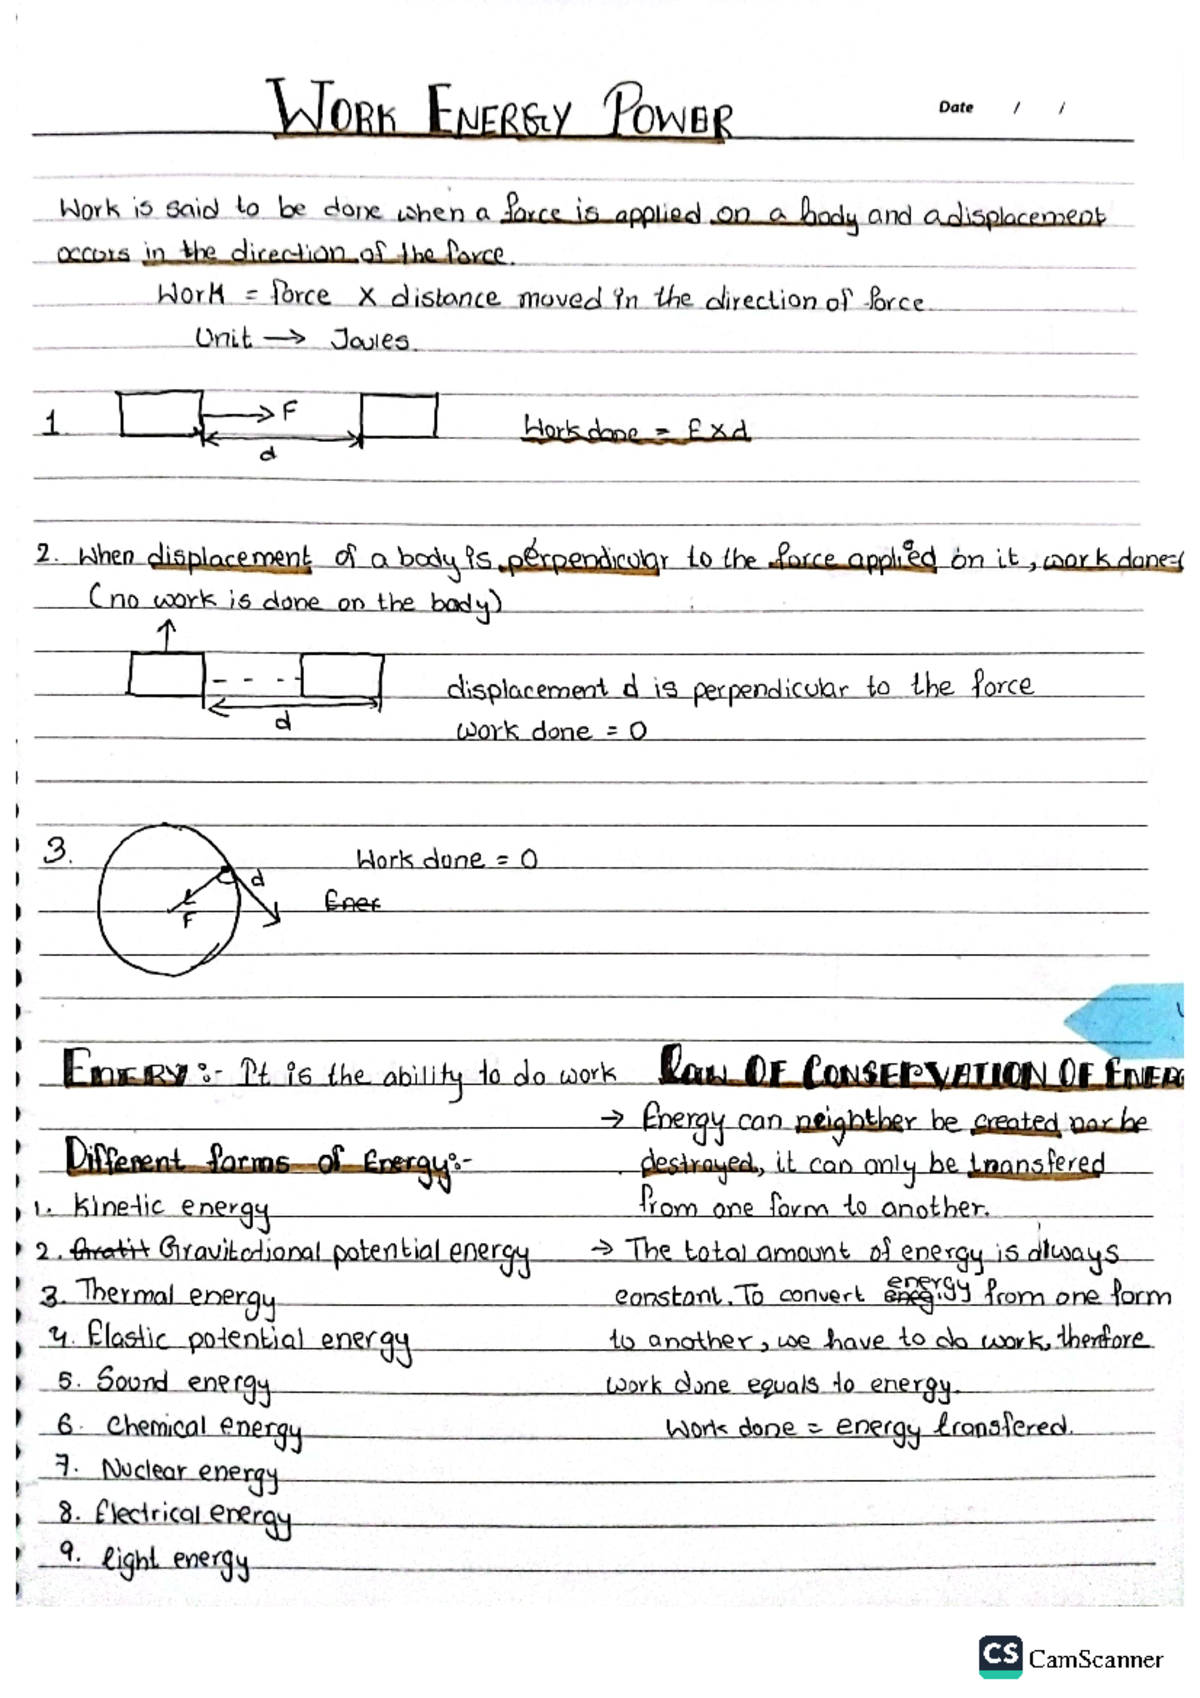 WORK ENERGY POWER
Date / /
Work is said to be done when a force is applied on a body and a displacement
occurs in the direction of the force.
Work = force X distance moved in the direction of force
Unit → Joules.
1.
F
d
Work done = F X d
2. When displacement of a body is perpendicular to the force applied on it, work done=
(no work is done on the body)
d
displacement d is perpendicular to the force
work done = 0
3.
d
F
Work done = 0
Ener
ENERY:- It is the ability to do work
Different forms of Energy:-
1. Kinetic energy
2. Gravit Gravitational potential energy
3. Thermal energy
4. Elastic potential energy
5. Sound energy
6. Chemical energy
7. Nuclear energy
8. Electrical energy
9. light energy
LAW OF CONSERVATION OF ENERG
→ Energy can neighther be created nor be
destroyed, it can only be transfered
from one form to another.
→ The total amount of energy is always
constant. To convert energy from one form
to another, we have to do work, therfore
work done equals to energy.
Work done = energy transfered.
CS CamScanner